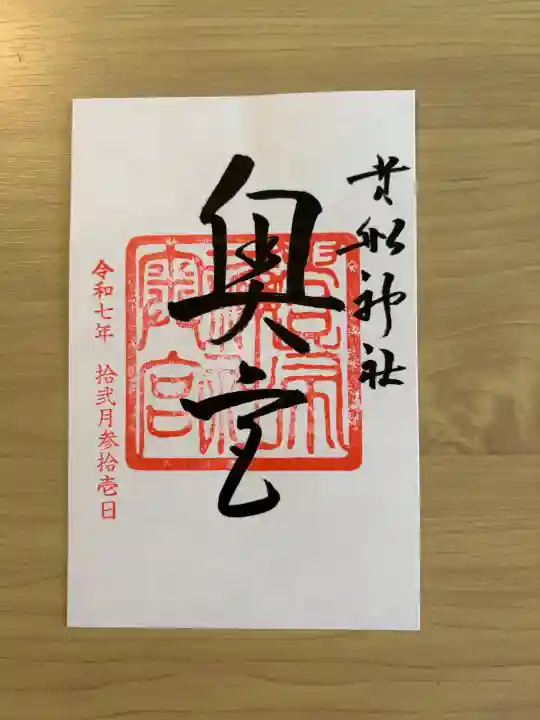 貴船神社
奥宮
令和七年 拾弐月参拾壱日